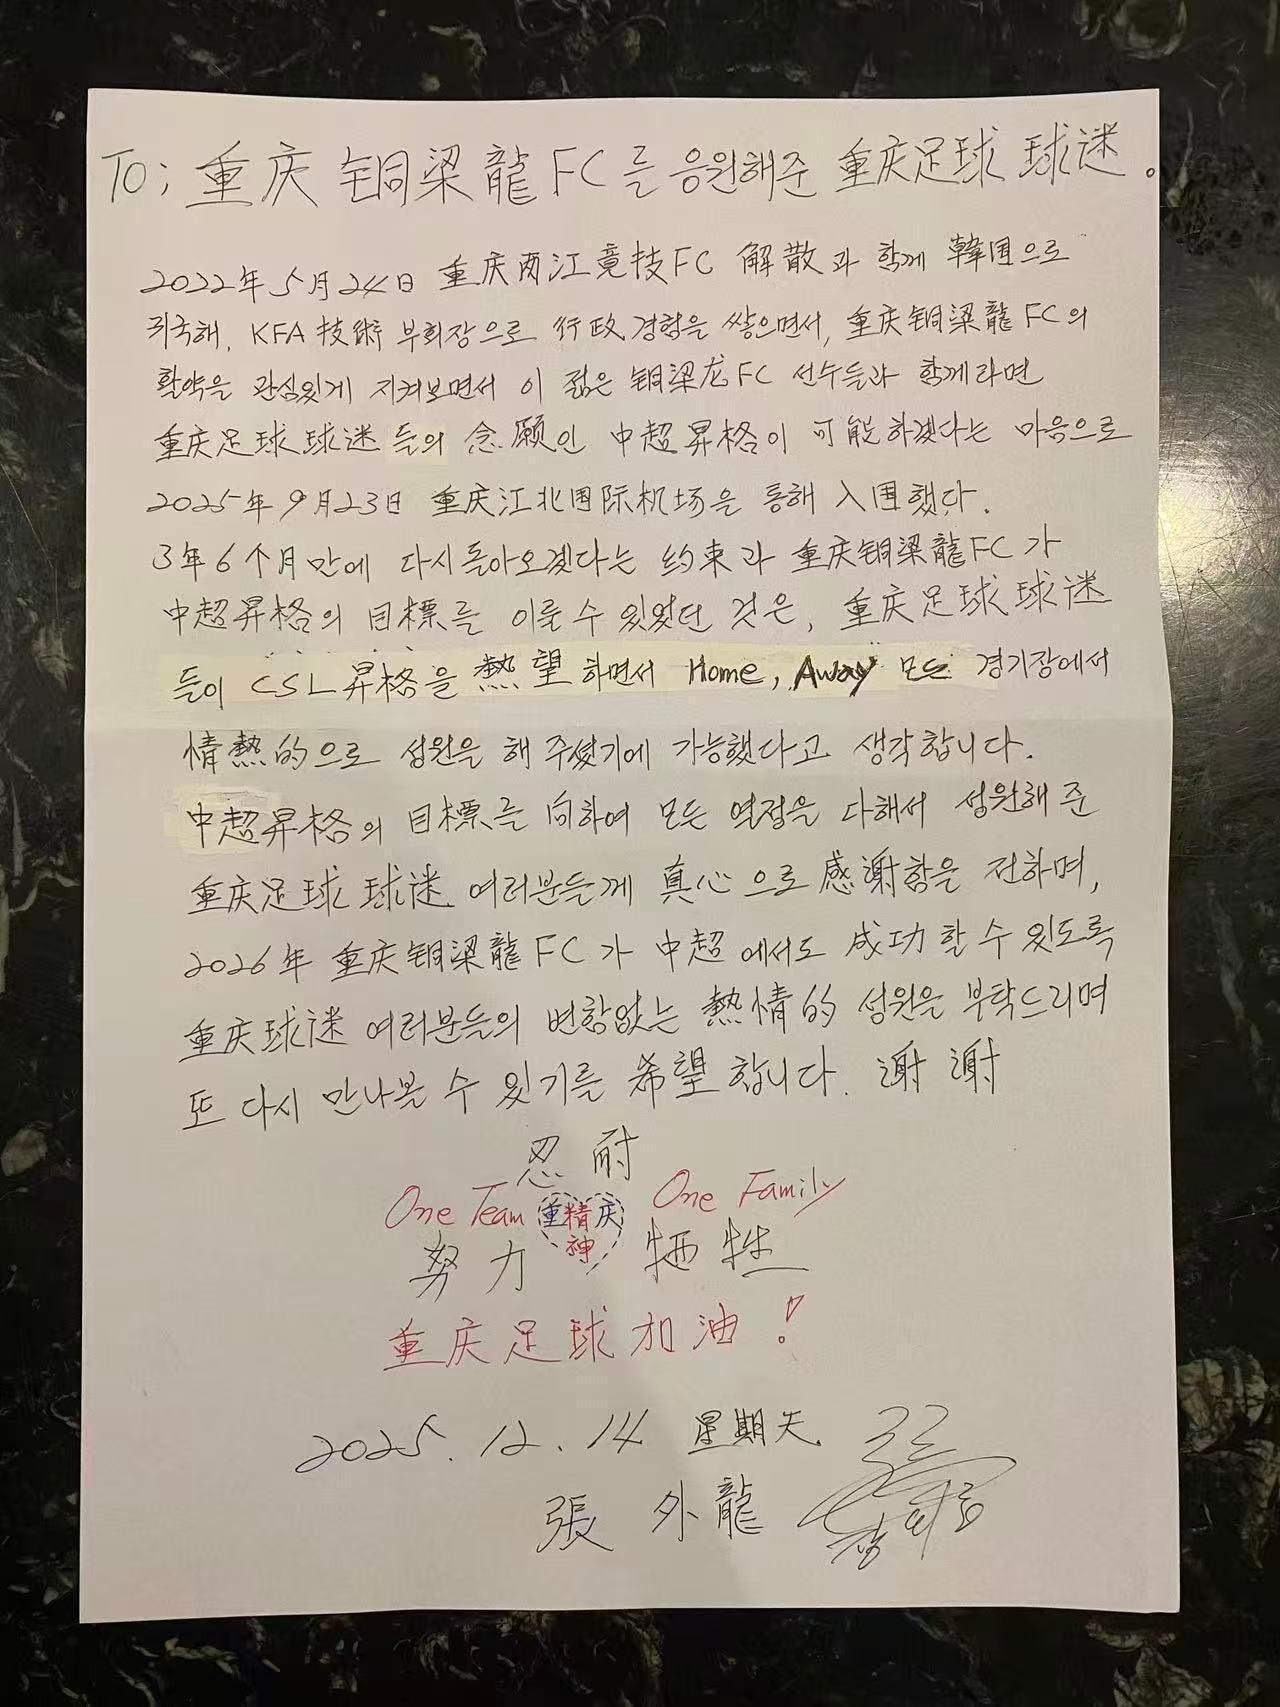 To; 重庆 铜梁龍FC를 응원해준 重庆足球 球迷.
2022年 5月 24日 重庆两江竞技FC 解散과 함께 韓国으로
귀국해, KFA 技術 부회장으로 行政 경험을 쌓으면서, 重庆铜梁龍FC의
활약을 관심있게 지켜보면서 이 젊은 铜梁龙FC 선수들과 함께라면
重庆足球球迷들의 念願인 中超昇格이 可能하겠다는 마음으로
2025年 9月23日 重庆江北国际机场을 통해 入国했다.
3年6个月만에 다시돌아오겠다는 约束과 重庆铜梁龍FC가
中超昇格의 目標를 이룰수 있었던 것은, 重庆足球球迷
들이 CSL昇格을 熱望하면서 Home, Away 모든 경기장에서
情熱的으로 성원을 해 주셨기에 가능했다고 생각합니다.
中超昇格의 目標를 向하여 모든 열정을 다해서 성원해 준
重庆足球 球迷 여러분들게 真心으로 感谢함을 전하며,
2026年 重庆铜梁龍FC가 中超에서도 成功할 수 있도록
重庆球迷 여러분들의 변함없는 熱情的 성원을 부탁드리며
또 다시 만나볼 수 있기를 希望합니다. 谢谢
忍耐
One Team 重精庆 One Family
神
努力 牺牲
重庆足球加油!
2025. 12. 14 星期天
張 外龍